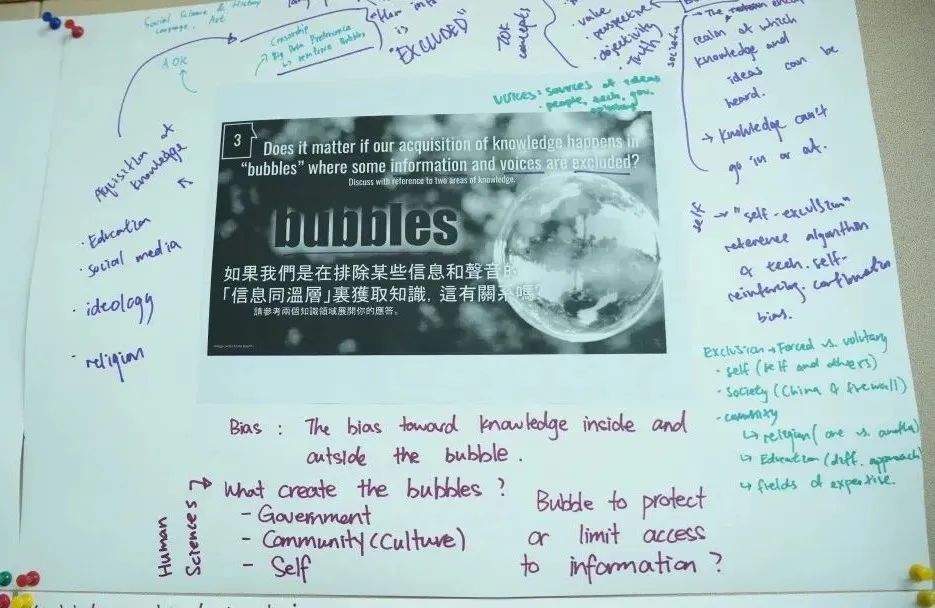 Social Science & History
Language, Art
AOK
Censorship
Big Data Preference
→ reinforce bubbles
is
"EXCLUDED"
TOK
concepts
value
· perspective
· objectivity
· Truth
societal
realm at which
knowledge and
ideas can be
heard.
→ knowledge can't
go in or out.
VOICES: sources of ideas
people, tech, gov.
Aquisition of
knowledge
· Education
· social media
· ideology
· religion
3
Does it matter if our acquisition of knowledge happens in
"bubbles" where some information and voices are excluded?
Discuss with reference to two areas of knowledge.
bubbles
如果我們是在排除某些信息和聲音的
「信息同溫層」裏獲取知識，這有關系嗎?
請參考兩個知識領域展開你的應答。
self → "self-exculsion"
reference algorithm
& tech. self-
reinforcing. confirmation
bias.
Exclusion → Forced vs. voluntary
· self (self and others)
· Society (China & firewall)
· community
↳ religion (one vs. another)
↳ Education (diff. approach)
↳ fields of expertise.
Bias : The bias toward knowledge inside and
outside the bubble.
Human
Sciences
→ What create the bubbles ?
- Government
- Community (Culture)
- Self
Bubble to protect
or limit access
to information ?